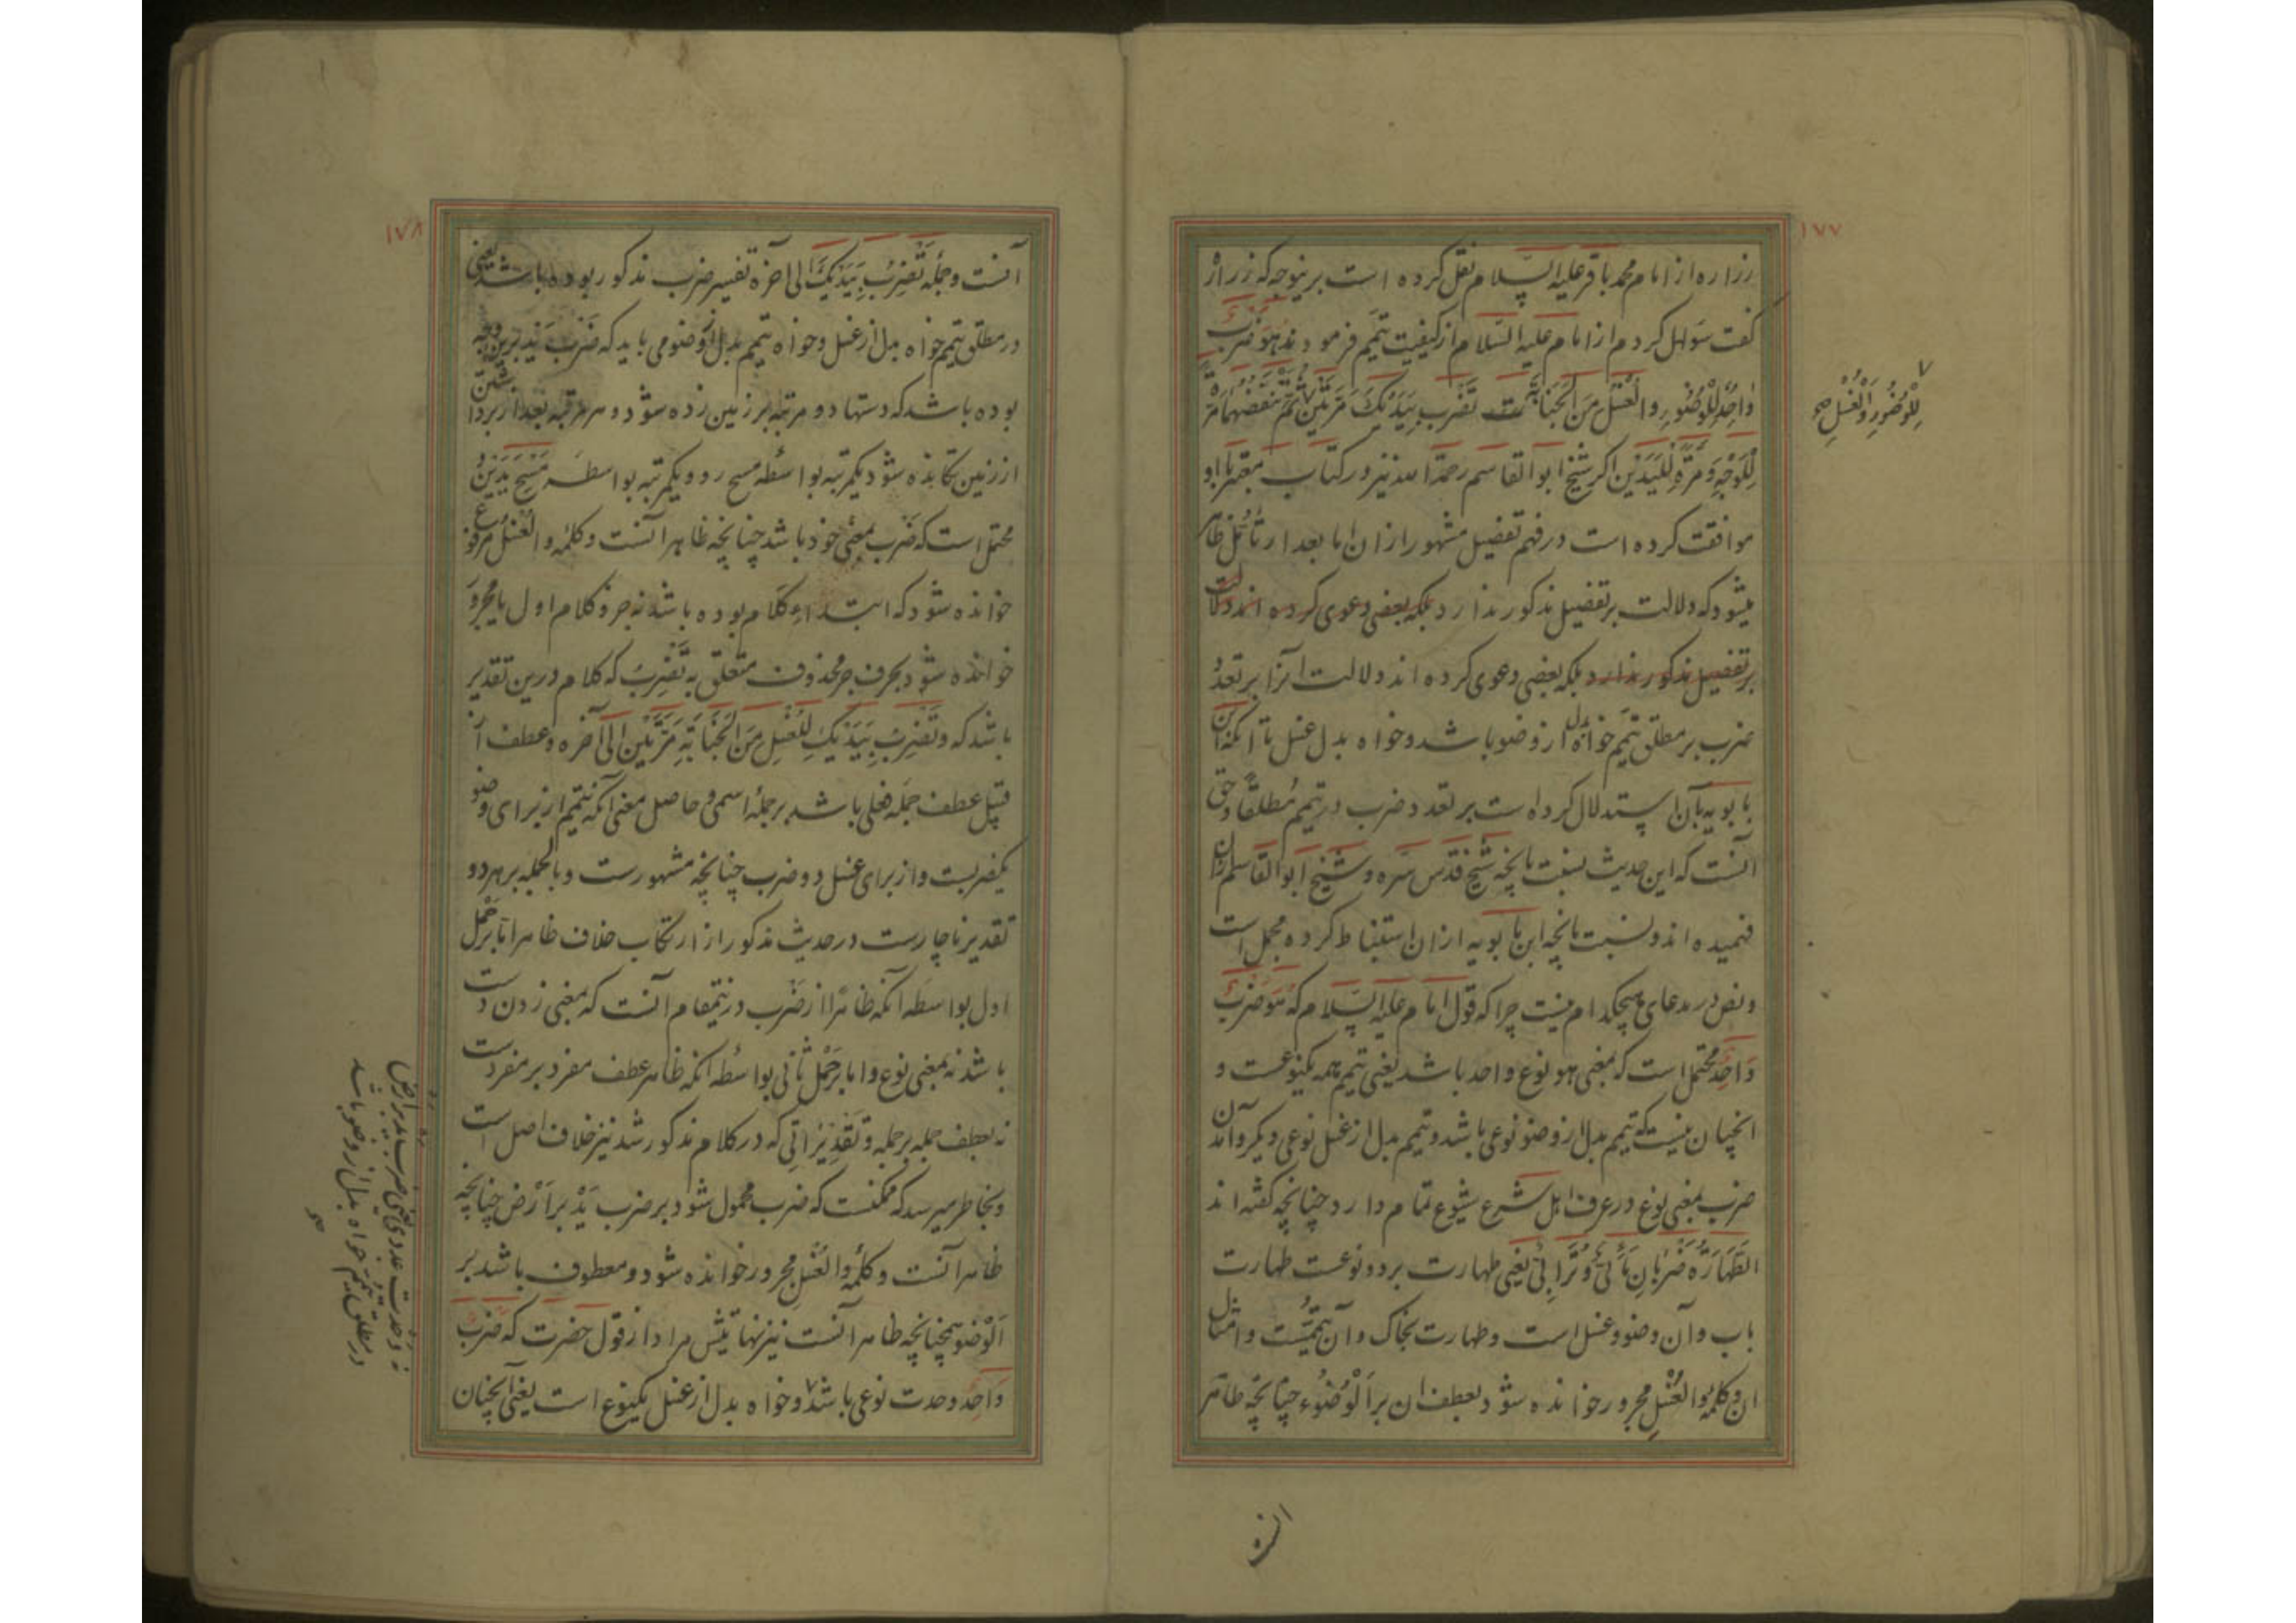 ١٧٧
زراره از امام محمد باقر عليه السّلام نقل كرده است برينوجه كه زراره
كفت سوال كردم از امام عليه السّلام از كيفيت تيمم فرمودند هُوَ ضَربٌ
وٰاحِدٌ لِلْوُضُوءِ والغُسْلُ مِنَ الجَنابَةِ تَضْرِبُ بِيَدَيْكَ مَرَّتَيْنِ ثُمَّ تَنْفُضُهُمَا مَرَّةً
لِلْوَجْهِ وَمَرَّةً لِلْيَدَيْنِ اكر شيخ ابو القاسم رحمة الله نيز در كتاب معتبر با او
موافقت كرده است در فهم تفضيل مشهور ازان اما بعد از تأمّل ظاهر
ميشود كه دلالت بر تفضيل مذكور ندارد بلكه بعضى دعوى كرده اند دلالت
بر تفضيل مذكور ندارد بلكه بعضى دعوى كرده اند دلالت انرا بر تعدّد
ضرب بر مطلق تيمم خواه بدل از وضو باشد و خواه بدل غسل تا انكه ابن
بابويه بآن استدلال كرداست بر تعدد ضرب در تيمم مُطلقًا و حق
انست كه اين حديث بنسبت بانچه شيخ قدّس سّره و شيخ ابو القاسم ازان
فهميده اند و نسبت بانچه ابن بابويه ازان استنباط كرده مجمل است
ونص در مدعاى هيچكدام نيست چرا كه قول امام عليه السّلام كه هُوَ ضَربٌ
وٰاحِدٌ محتمل است كه بمعنى هو نوع واحد باشد يعنى تيمم همه يكنوعست و
انچنان نيست كه تيمم بدل از وضو نوعى باشد و تيمم بدل از غسل نوعى ديكر و آمدن
ضرب بمعنى نوع در عرف اهل شرع شيوع تمام دارد چنانچه كفته اند
الطَّهارَةُ ضَرْبٰانِ مٰائىٌّ وَتُرٰابىٌّ يعنى طهارت بر دو نوعست طهارت
باب وآن وضو و غسل است و طهارت بخاك و آن تيمّمست و امثال
ان و كلمهٔ والغُسْلِ مجرور خوانده شود بعطف ان بر اَلْوُضُوء چنانچه ظاهر
للْوُضُوءِ وَالْغُسْلِ صح
١٧٨
آنست و جملهٔ تَضْرِبُ بِيَدَيْكَ الى اخره تفسير ضرب مذكور بوده باشد يعنى
در مطلق تيمم خواه بدل از غسل و خواه تيمم بدل از وضو مى بايد كه ضَرْبِ يَد برين وجه
بوده باشد كه دستها دو مرتبه بر زمين زده شود و هر مرتبه بعد از برداشتن
از زمين تكانده شود يكمرتبه بواسطه مسح رو و يكمرتبه بواسطه مَسْحِ يَدَيْن و
محتمل است كه ضَرب بمعنى خود باشد چنانچه ظاهر آنست و كلمه والغُسْلُ مرفوع
خوانده شود كه ابتداء كلام بوده باشد نه جزو كلام اول يا مجرور
خوانده شود بحرف جر محذوف متعلق به تَضْرِبُ كه كلام درين تقدير
باشد كه وَ تَضْرِبُ بِيَدَيْكَ لِلْغُسْلِ مِنَ الجَنابَةِ مَرَّتَيْنِ الى آخره و عطف آن
قبيل عطف جمله فعلى باشد بر جملهٔ اسمى و حاصل معنى آنكه تيمم از براى وضو
يكضربست و از براى غسل دو ضرب چنانچه مشهورست و بالجمله بر هر دو
تقدير ناچارست در حديث مذكور از ارتكاب خلاف ظاهر اما بر حَمْل
اول بواسطه آنكه ظاهرا از ضَرب درينمقام آنست كه بمعنى زدن دست
باشد نه بمعنى نوع و اما بر حَمْل ثانى بواسطه انكه ظاهر عطف مفرد بر مفردست
نه عطف جمله بر جمله و تَقديراتى كه در كلام مذكور شد نيز خلاف اصل است
و بخاطر ميرسد كه ممكنست كه ضرب محمول شود بر ضرب يَدْ بر اَرْض چنانچه
ظاهر آنست و كلمهٔ والغُسْلِ مجرور خوانده شود و معطوف باشد بر
اَلْوُضُو همچنانچه ظاهر آنست نيز نهايتش مراد از قول حضرت كه ضَربٌ
وٰاحِدٌ وحدت نوعى باشد و خواه بدل از غسل يكنوع است يعنى آنچنان
نه وَحْدت عددى يعنى ضرب يد بر ارض
در مطلق تيمم خواه بدل از وضو باشد
صح